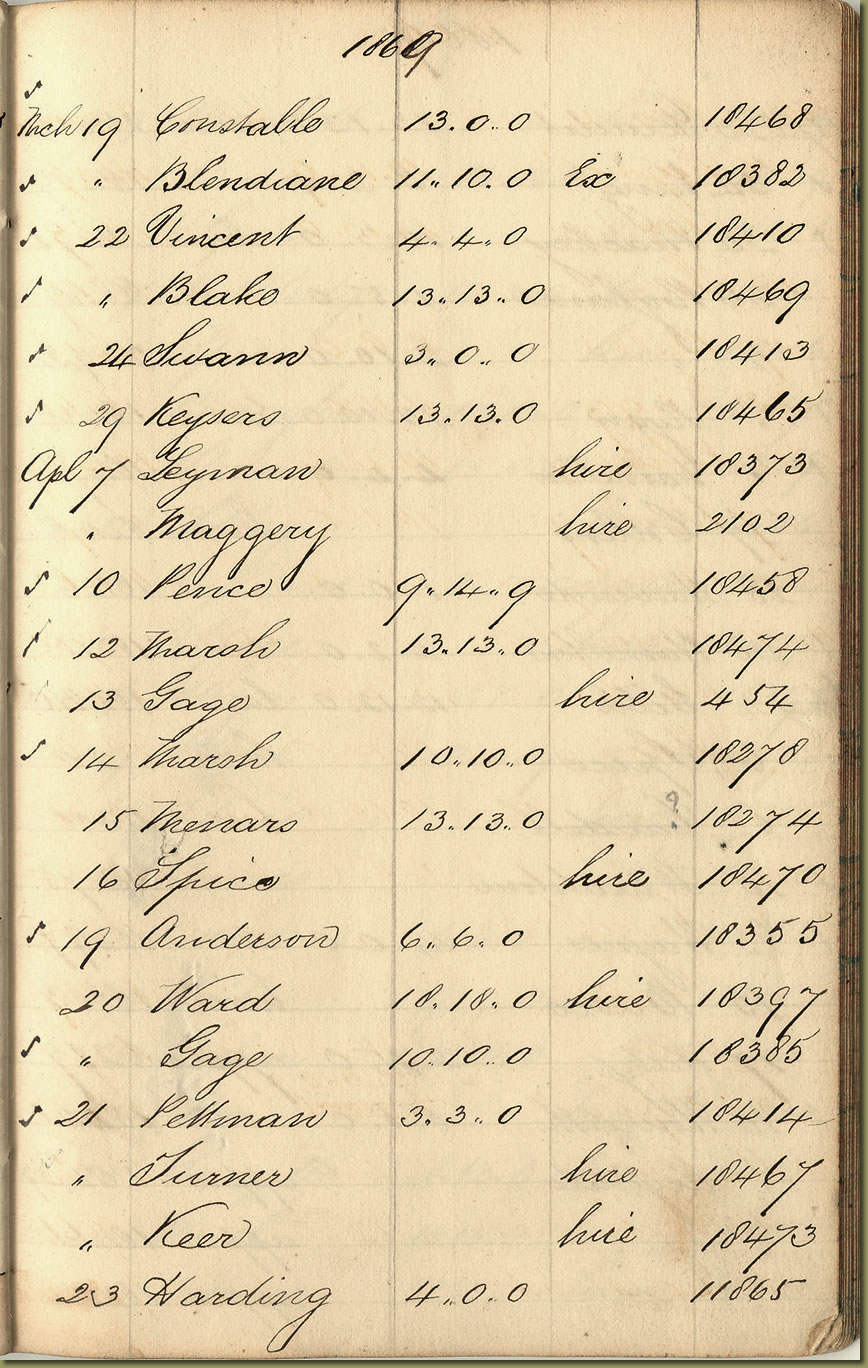 1869
Mch 19 Constable 13. 0.. 0 18468
" Blendiane 11.. 10. 0 Ex 18382
22 Vincent 4.. 4.. 0 18410
" Blake 13.. 13.. 0 18469
24 Swann 3.. 0.. 0 18413
29 Keysers 13.. 13. 0 18465
Apl 7 Leyman hire 18373
" Maggery hire 2102
10 Pence 9.. 14.. 9 18458
12 Marsh 13. 13.. 0 18474
13 Gage hire 454
14 Marsh 10.. 10.. 0 18278
15 Menars 13.. 13.. 0 ? 18274
16 Spice hire 18470
19 Anderson 6.. 6.. 0 18355
20 Ward 18.. 18.. 0 hire 18397
" Gage 10.. 10.. 0 18385
21 Pettman 3.. 3.. 0 18414
" Turner hire 18467
" Keer hire 18473
23 Harding 4.. 0.. 0 11865